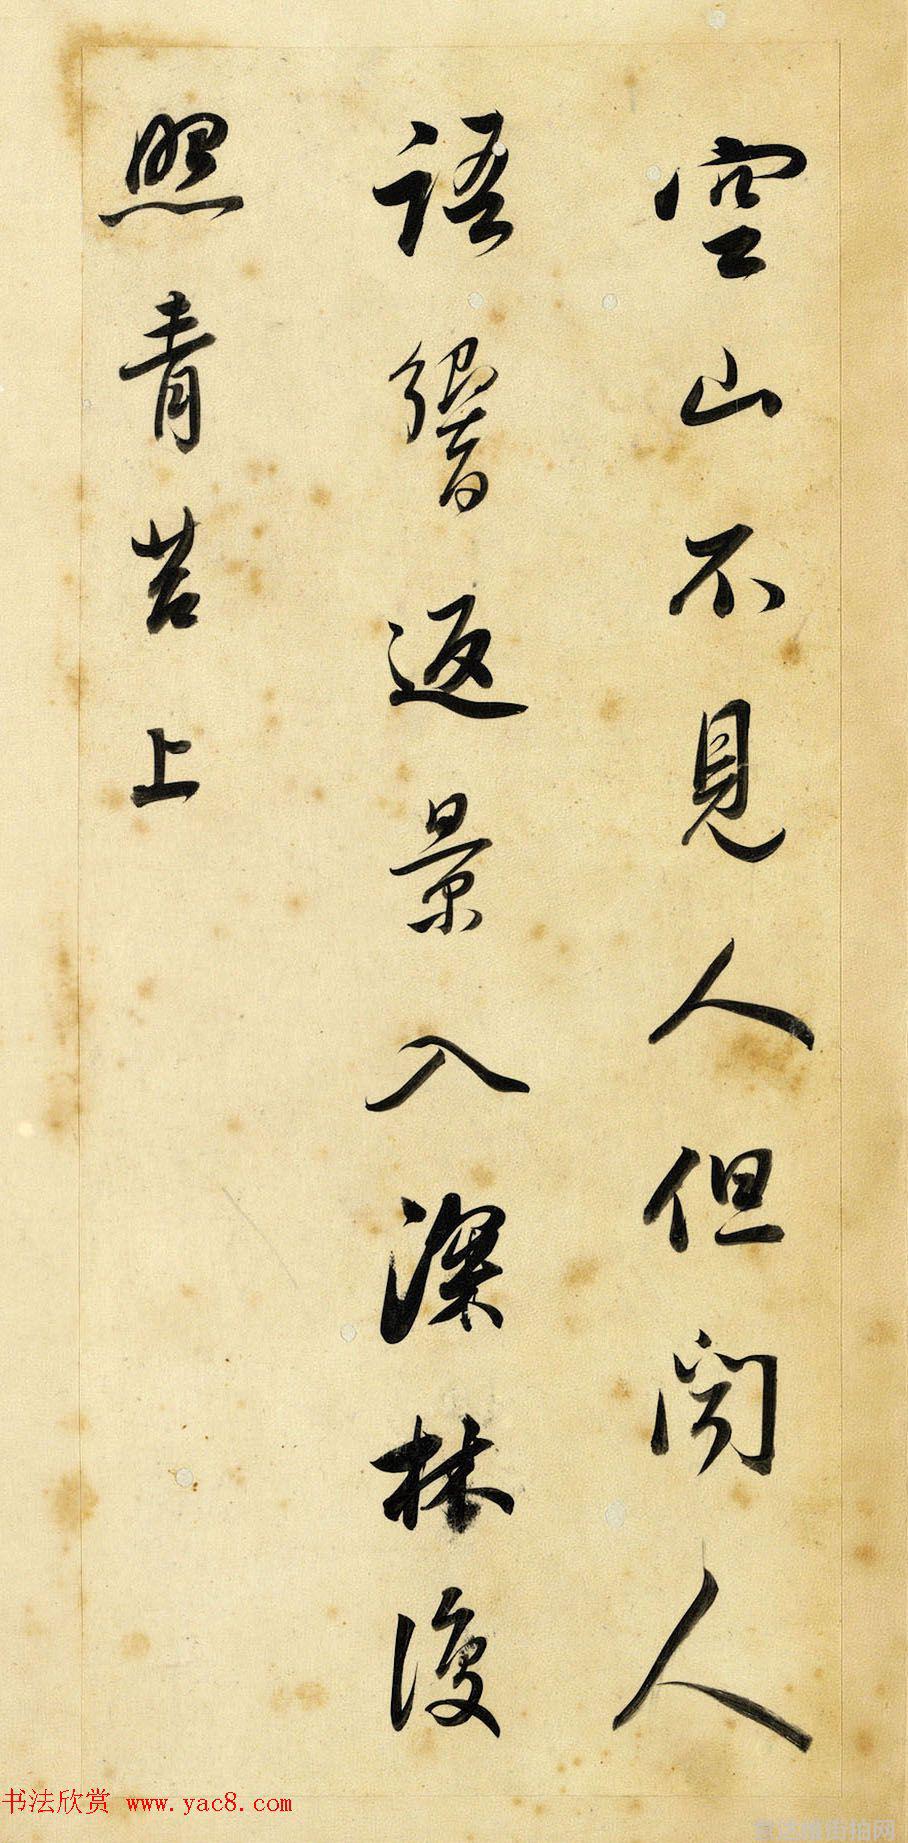 空山不見人但聞人
語響返景入深林復
照青苔上
书法欣赏 www.yac8.com